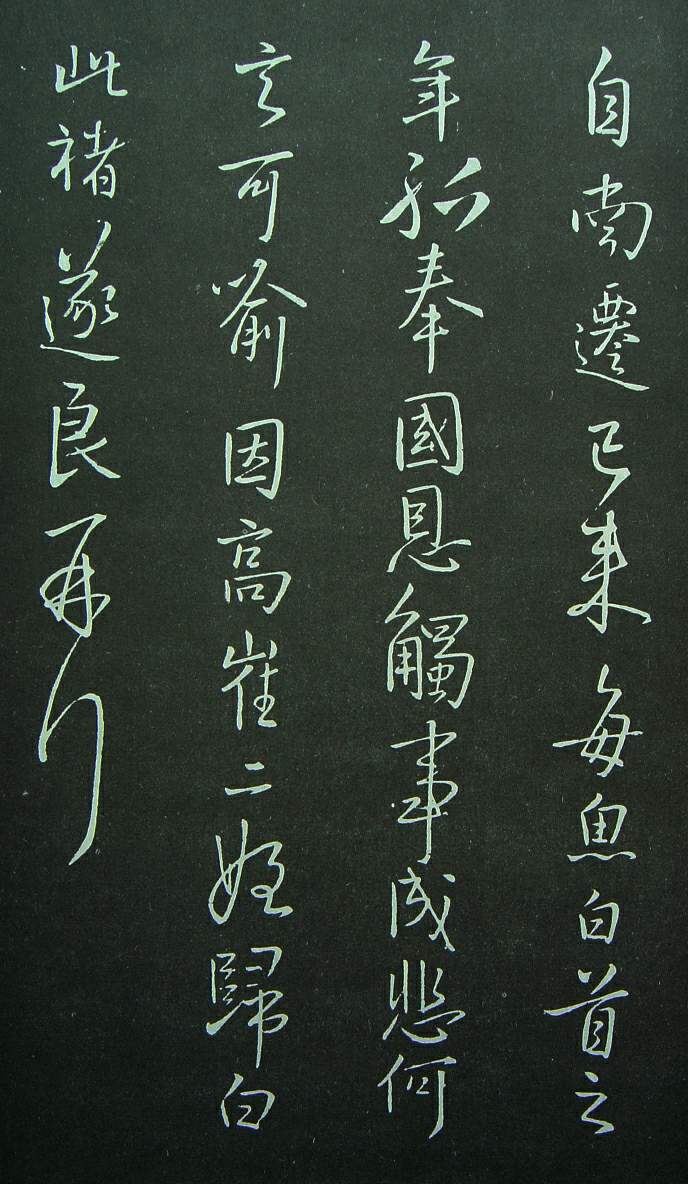 自南遷已來每白首之
年孤奉國恩觸事成悲何
言可喻因高崔二姪歸白
此褚遂良再拜